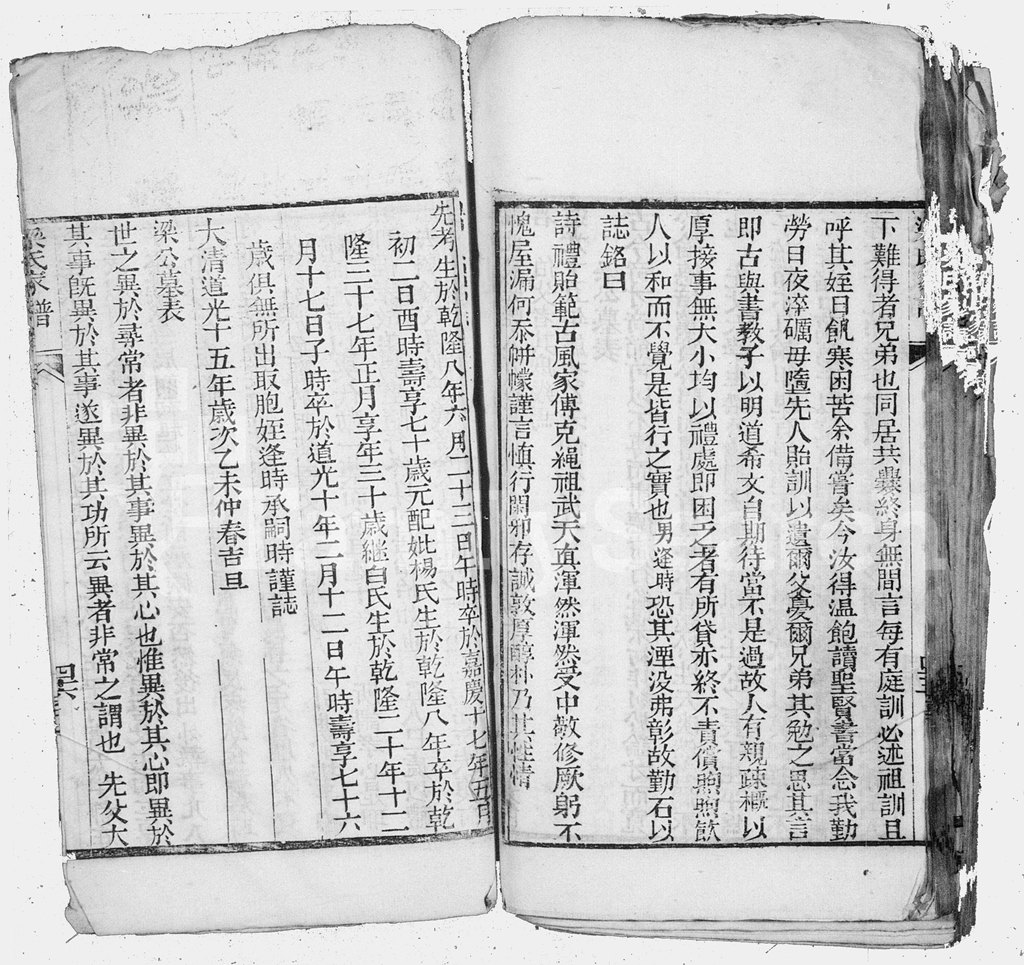 下難得者兄弟也同居共爨終身無間言每有庭訓必述祖訓且
呼其姪曰飢寒困苦余備嘗矣今汝得温飽讀聖賢書當念我勤
勞日夜淬礪毋墮先人貽訓以遺爾父憂爾兄弟其勉之思其言
即古與書教子以明道希文自期待當不是過故人有親疎概以
厚接事無大小均以禮處即困乏者有所貸亦終不責償煦煦飲
人以和而不覺是皆行之實也男逢時恐其湮没弗彰故勒石以
誌銘曰
詩禮貽範古風家傅克繩祖武天真渾然渾然受中敬修厥躬不
愧屋漏何忝帡幪謹言慎行閑邪存誠敦厚醇朴乃其性情
先考生於乾隆八年六月二十三日午時卒於嘉慶十七年五月
初二日酉時壽享七十歲元配妣楊氏生於乾隆八年卒於乾
隆三十七年正月享年三十歲繼白氏生於乾隆二十年十二
月十七日子時卒於道光十年二月十二日午時壽享七十六
歲俱無所出取胞姪逢時承嗣時謹誌
大清道光十五年歲次乙未仲春吉旦
梁公墓表
世之異於尋常者非異於其事異於其心也惟異於其心即異於
其事既異於其事遂異於其功所云異者非常之謂也 先父大
梁氏家譜
四六